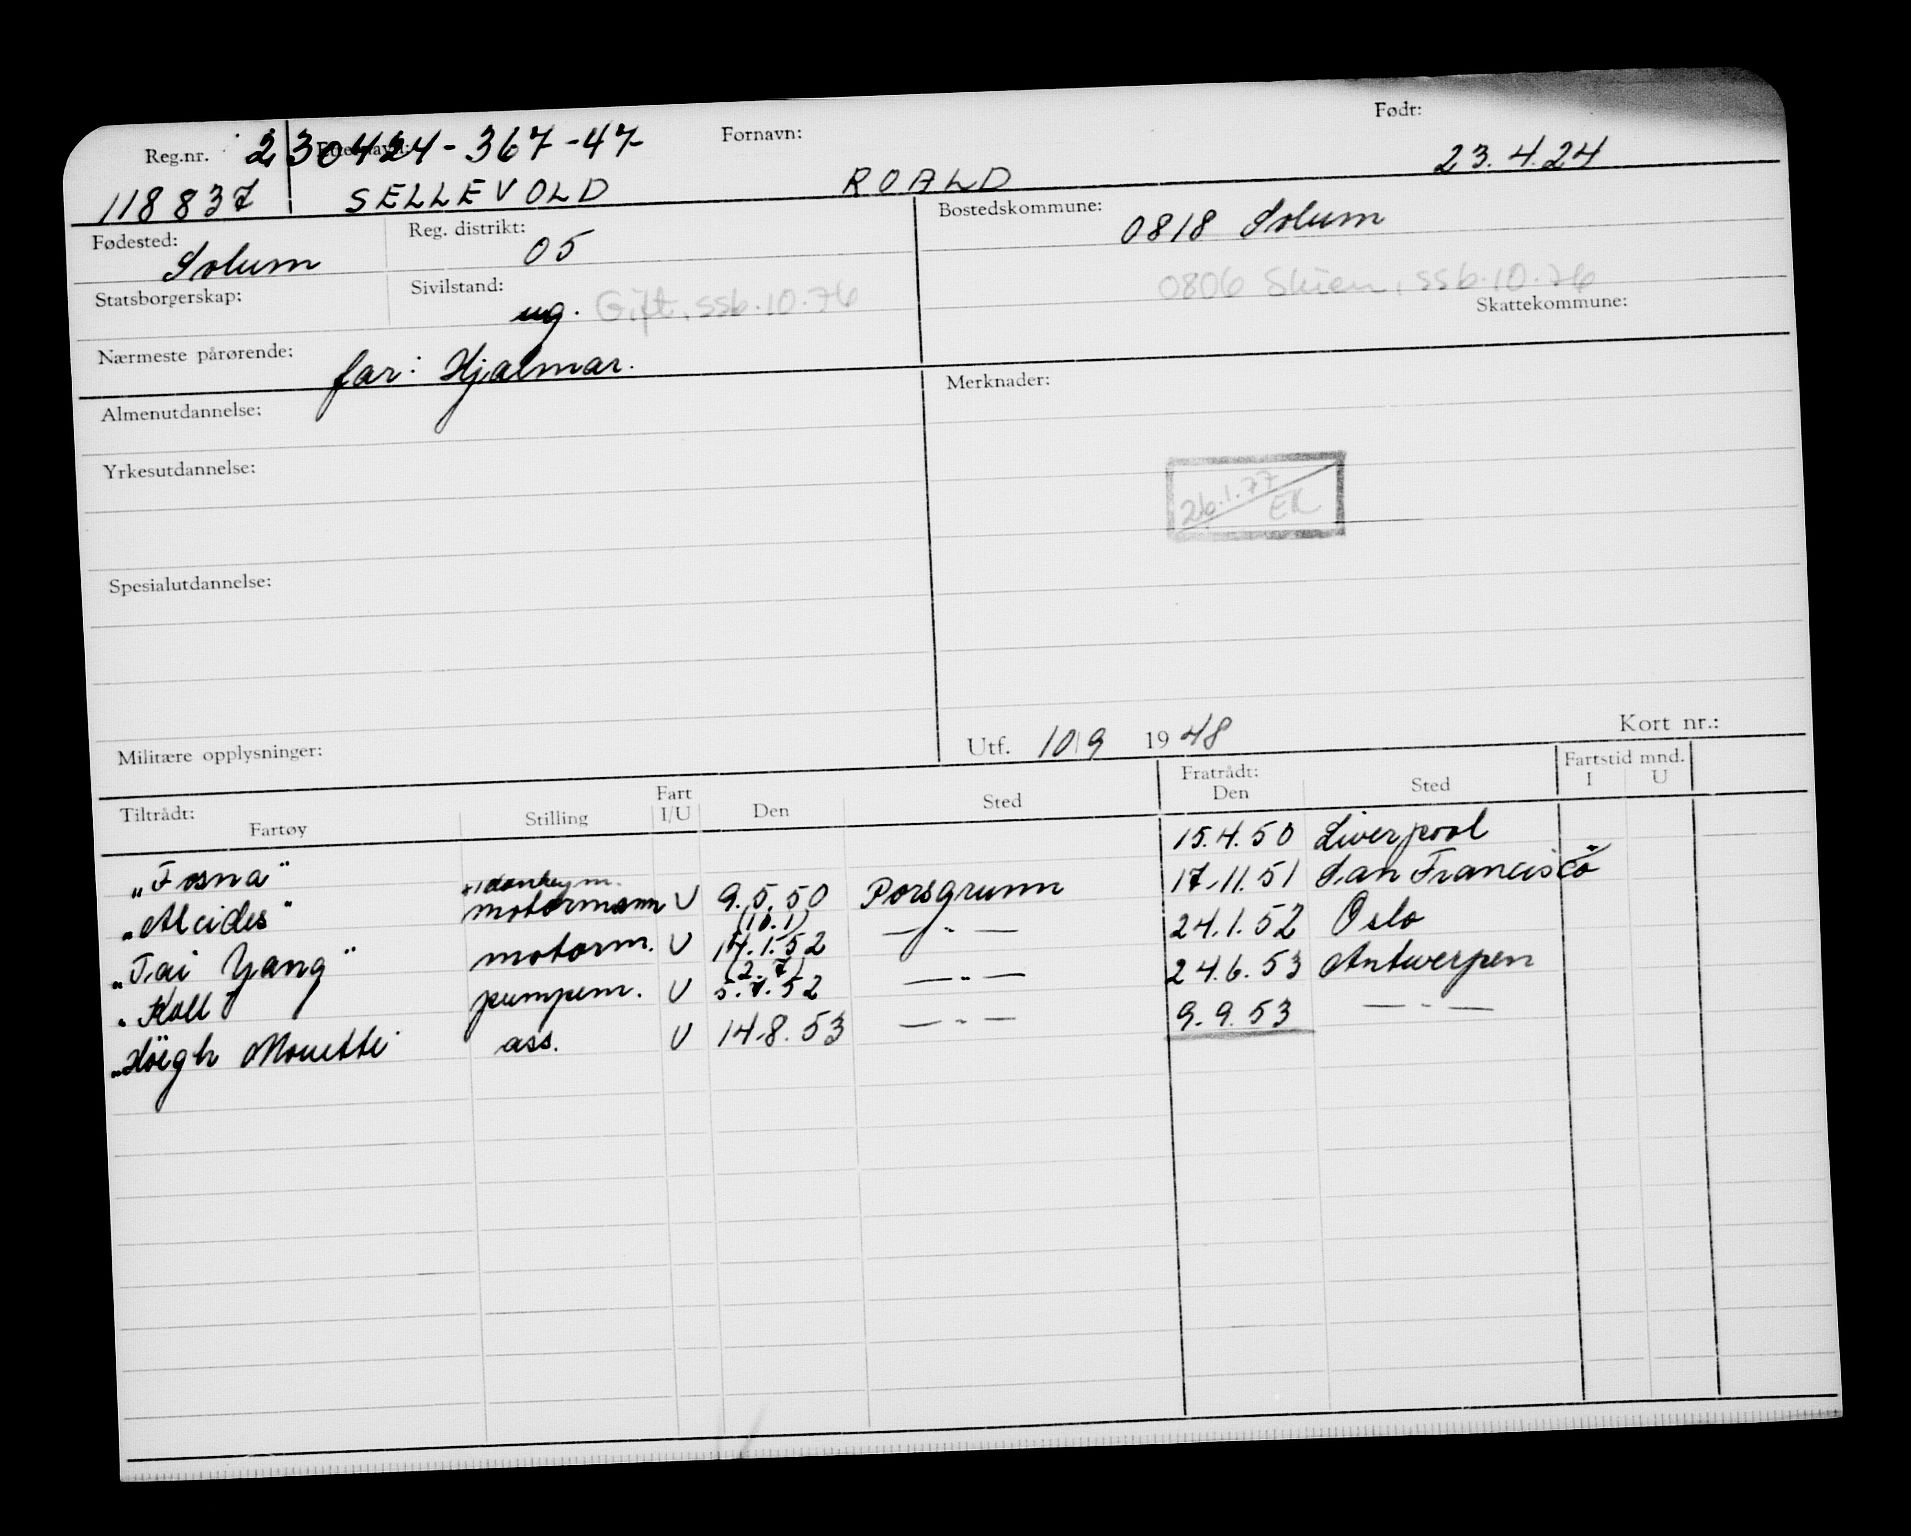 Reg.nr. 230424-367-47 Fornavn: Født:
118837 SELLEVOLD ROALD 23.4.24
Fødested: Solum Reg. distrikt: 05 Bostedskommune: 0818 Solum
Statsborgerskap: Sivilstand: ug. Gift, ssb.10.76 0806 Skien, ssb.10.76
Skattekommune:
Nærmeste pårørende: far: Hjalmar.
Almenutdannelse: Merknader:
Yrkesutdannelse:
26.1.77 EK
Spesialutdannelse:
Militære opplysninger: Utf. 10/9 1948 Kort nr.:
Tiltrådt: Fartøy Stilling Fart I/U Den Sted Fratrådt: Den Sted Fartstid mnd. I U
"Fosna" 15.4.50 Liverpool
"Alcides" donkeym. motormann U 9.5.50 Porsgrunn 17.11.51 San Francisco
"Tai Yang" motorm. U (10.1) 14.1.52 —"— 24.1.52 Oslo
"Koll pumpem. U (2.7) 5.7.52 —"— 24.6.53 Antwerpen
"Höegh ass. U 14.8.53 —"— 9.9.53 —"—